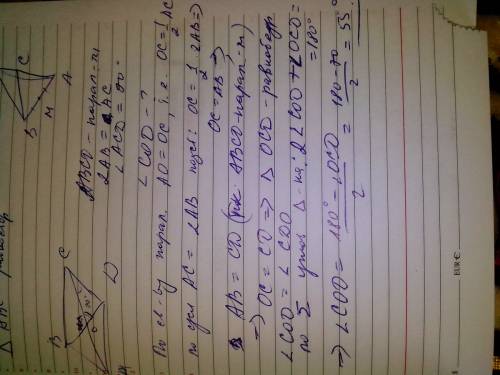 B
C
M
A
B
C
O
D
ABCD - парал-м
2AB = AC
∠ACD = 70°
∠COD - ?
По св-ву парал. AO = OC, т.е. OC = 1/2 AC
по усл AC = 2AB OC = 1/2 · 2AB ⇒
OC = AB ⇒
AB = CD (т.к. ABCD - парал-м)
⇒ OC = CD ⇒ △ OCD - равнобедр.
∠COD = ∠CDO
по Σ углов △-ка: 2∠COD + ∠OCD =
= 180°
⇒ ∠COD = 180° - ∠OCD / 2 = 180 - 70 / 2 = 55°
EUR €